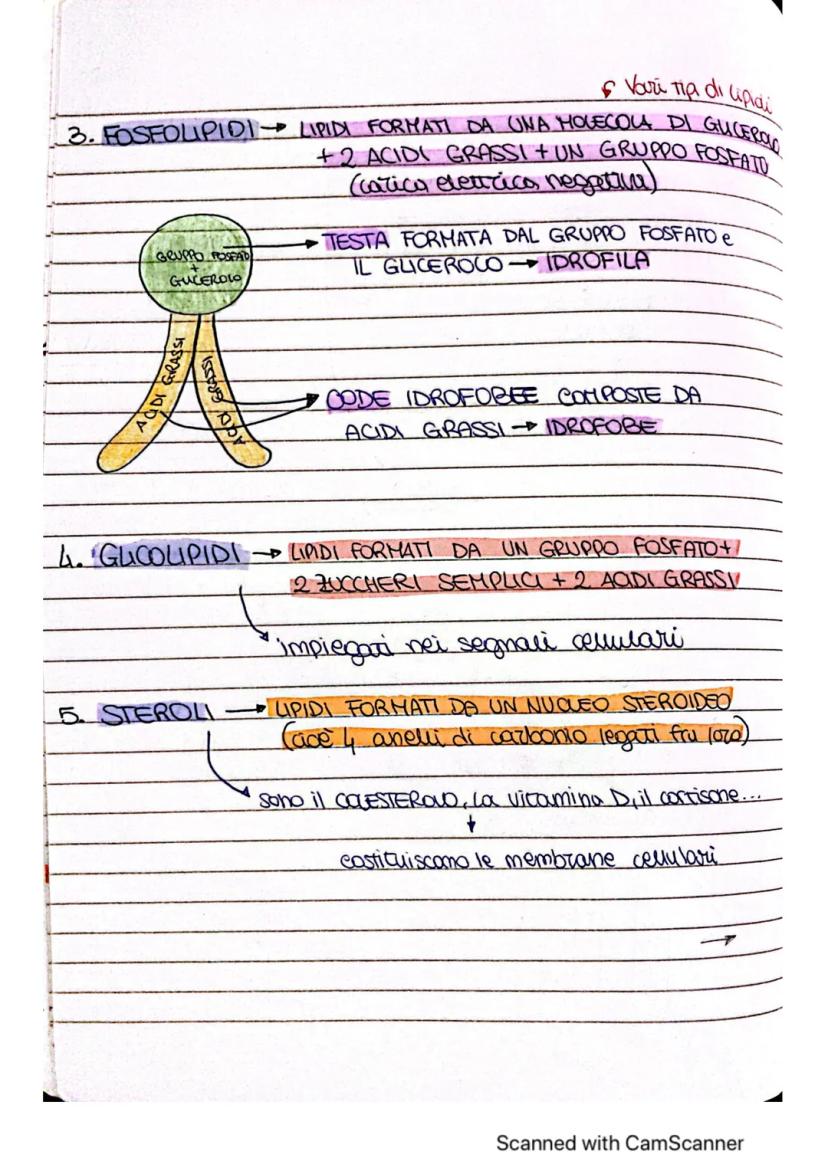 Vari tipi di lipidi
3. FOSFOLIPIDI → LIPIDI FORMATI DA UNA MOLECOLA DI GLICEROLO
+ 2 ACIDI GRASSI + UN GRUPPO FOSFATO
(carica elettrica negativa)
GRUPPO FOSFATO
+
GLICEROLO
→ TESTA FORMATA DAL GRUPPO FOSFATO e
IL GLICEROLO → IDROFILA
ACIDI GRASSI
ACIDI GRASSI
→ CODE IDROFOBEE COMPOSTE DA
ACIDI GRASSI → IDROFOBE
4. GLICOLIPIDI → LIPIDI FORMATI DA UN GRUPPO FOSFATO +
2 ZUCCHERI SEMPLICI + 2 ACIDI GRASSI
impiegati nei segnali cellulari
5. STEROLI → LIPIDI FORMATI DA UN NUCLEO STEROIDEO
(cioè 4 anelli di carbonio legati fra loro)
sono il COLESTEROLO, la vitamina D, il cortisone...
↓
costituiscono le membrane cellulari
→
Scanned with CamScanner